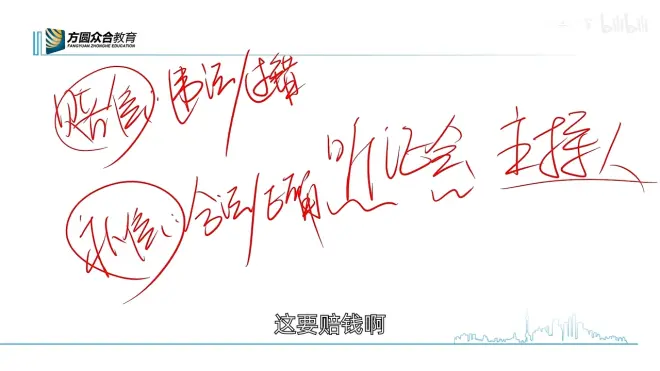 方圆众合教育
FANGYUAN ZHONGHE EDUCATION
bilibili
赔偿:违法/过错
补偿:合法/正确 听证会 主持人
这要赔钱啊